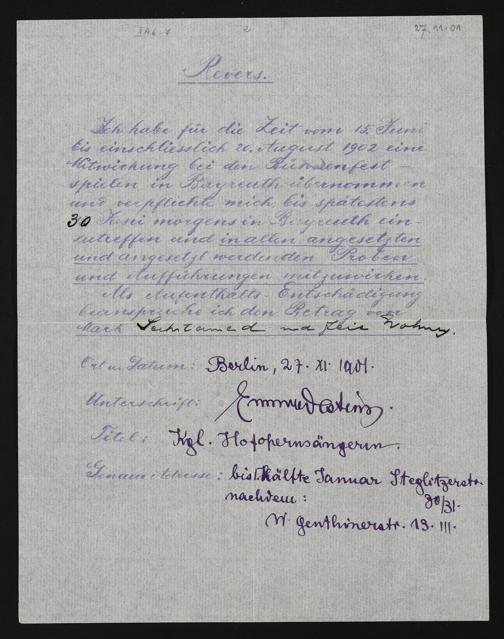 XA6-7
2
27.11.01
Revers.
Ich habe für die Zeit vom 15. Juni
bis einschliesslich 20. August 1902 eine
Mitwirkung bei den Bühnenfest
spielen in Bayreuth übernommen
und verpflichte mich bis spätestens
30 Juni morgens in Bayreuth ein-
zutreffen und in allen angesetzten
und angesetzt werdenden Proben
und Aufführungen mitzuwirken.
Als Aufenthalts-Entschädigung
beanspruche ich den Betrag von
Mark Sechstausend und freie Wohnung.
Ort u. Datum: Berlin, 27. XI. 1901.
Unterschrift: Emmy Destinn.
Titel: Kgl. Hofopernsängerin.
Genaue Adresse: bis Hälfte Januar Steglitzerstr.
nachdem: 30/31.
W. Genthinerstr. 13. III.